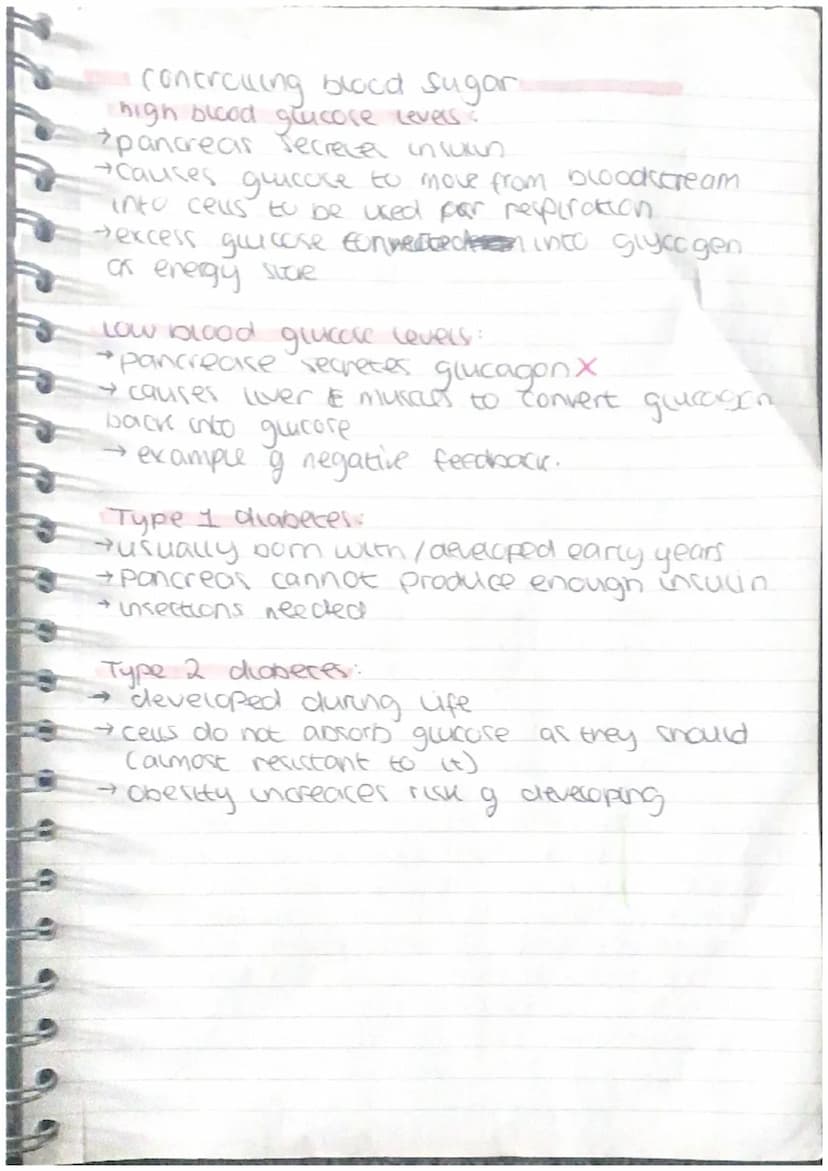 controlling blood sugar
high blood glucose levels:
→pancreas secretes insulin
→causes glucose to move from bloodstream
into cells to be used for respiration
→excess glucose converted into glycogen
as energy store
Low blood glucose levels:
→pancrease secretes glucagon X
→ causes liver & muscles to convert
back into glucose
→ example of negative feedback.
Type 1 diabetes:
→usually born with/developed early years
→pancreas cannot produce enough insulin
→insections needed
Type 2 diabetes:
→ developed during life
→cells do not absorb glucose as they should
(almost resistant to it)
→ obesity increases risk of developing